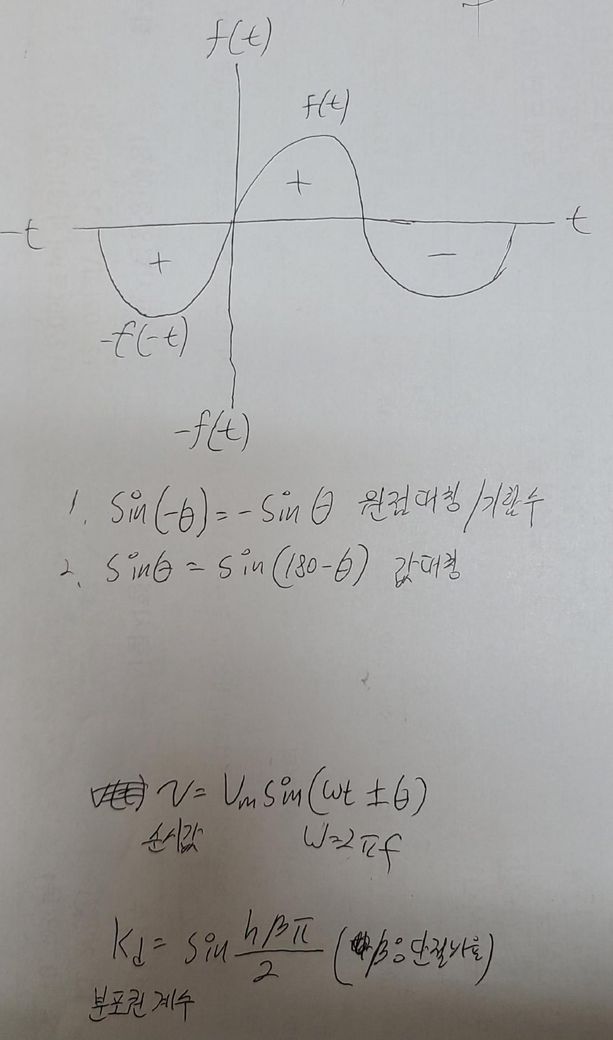 f(t)
f(t)
-t
t
+
+
−
-f(-t)
-f(t)
1. Sin(-θ) = - Sin θ 원점대칭/기함수
2. Sinθ = Sin(180-θ) 값대칭
v = Vm Sin(ωt ± θ)
순시값 ω=2πf
Kd = Sin hβπ/2 (β은 단절비율)
분포권 계수